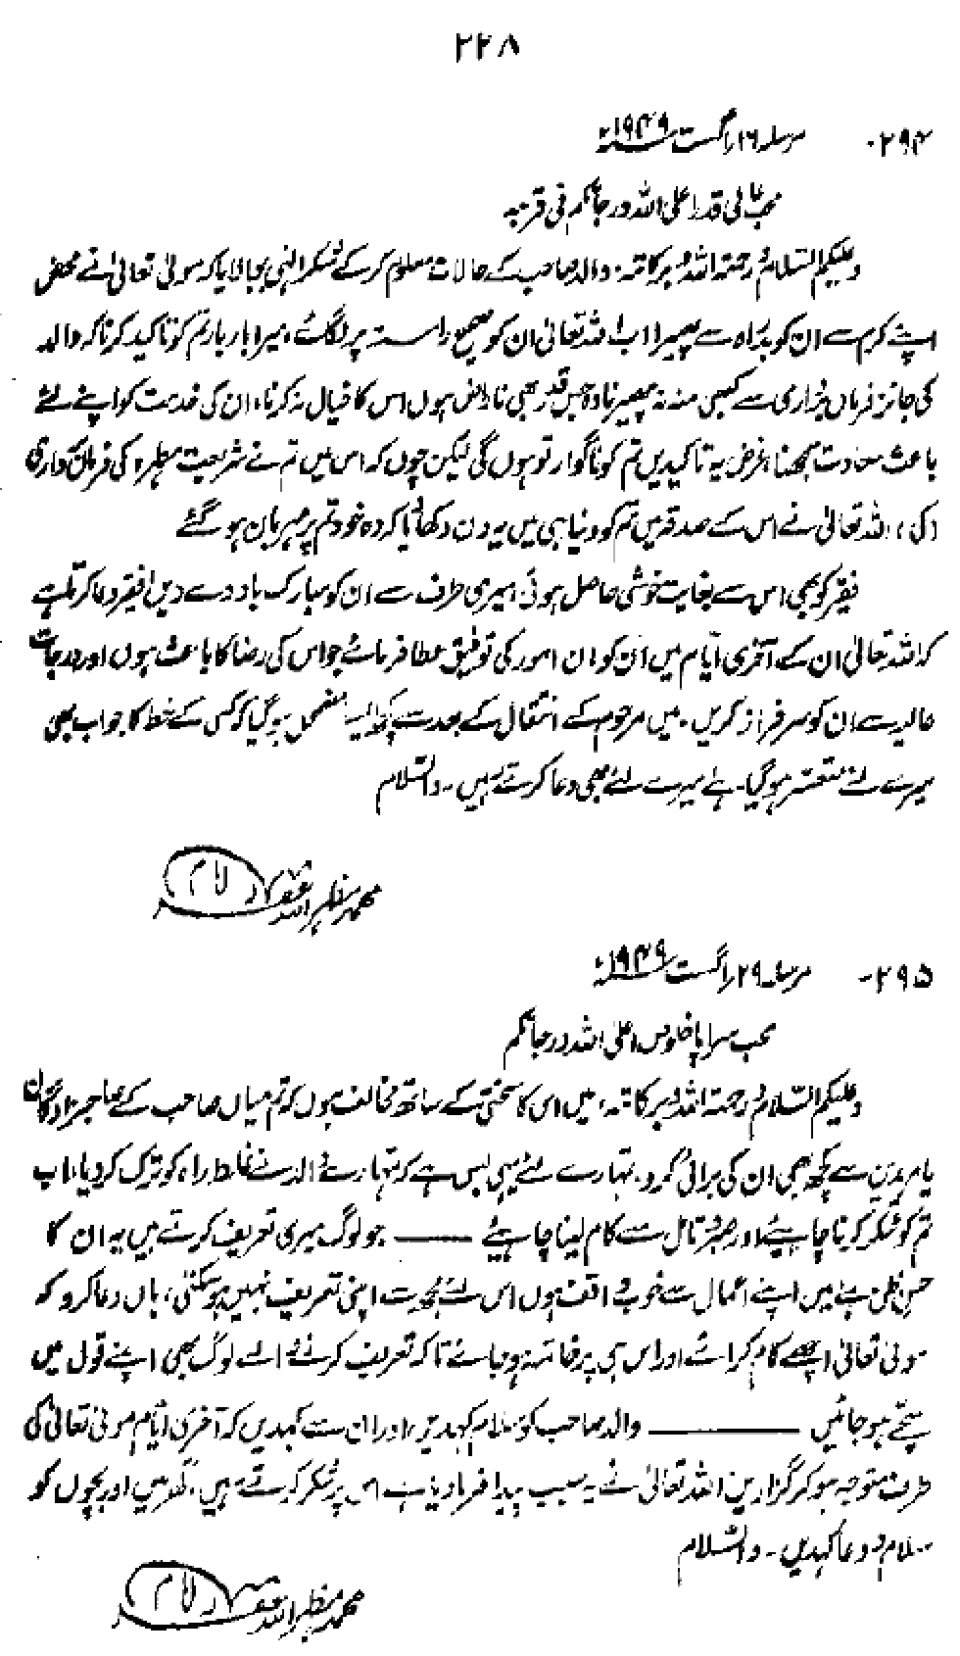 ۲۲۸
۲۹۴۔ مرسلہ ۱۶/اگست ۱۹۴۹ء
محب عالی قدر اعلی اللہ درجاتکم فی قربہ
وعلیکم السلام ورحمۃ اللہ وبرکاتہ، والد صاحب کے حالات معلوم کر کے شکر الٰہی بجا لایا کہ مولیٰ تعالیٰ نے محض
اپنے کرم سے ان کو بد راہ سے پھیرا اب اللہ تعالیٰ ان کو صحیح راستہ پر لگائے، میرا بار بار تم کو تاکید کرنا کہ والد
کی جائز فرماں برداری سے کبھی منہ نہ پھیرنا وہ جس قدر بھی ناراض ہوں اس کا خیال نہ کرنا، ان کی خدمت کو اپنے لئے
باعث سعادت سمجھنا، غرض یہ تاکیدیں تم کو ناگوار تو ہوں گی لیکن چوں کہ اس میں تم نے شریعت مطہرہ کی فرمانبرداری
کی، اللہ تعالیٰ نے اس کے صدقہ میں تم کو دنیا ہی میں یہ دن دکھایا کہ وہ خود تم پر مہربان ہو گئے
فقیر کو بھی اس سے بغایت خوشی حاصل ہوئی، میری طرف سے ان کو مبارک باد دے دیں، فقیر دعا کرتا ہے
کہ اللہ تعالیٰ ان کے آخری ایام میں ان کو ان امور کی توفیق عطا فرمائے جو اس کی رضا کا باعث ہوں اور درجات
عالیہ سے ان کو سرفراز کریں۔ میں مرحوم کے انتقال کے بعد سے کچھ ایسا مضمحل ہو گیا کہ کسی کے خط کا جواب بھی
میرے لئے متعسر ہو گیا ہے میرے لئے بھی دعا کرتے رہیں۔ والسلام
محمد مظہر اللہ غفرلہ
۲۹۵۔ مرسلہ ۲۹/اگست ۱۹۴۹ء
محب سراپا خلوص اعلی اللہ درجاتکم
وعلیکم السلام ورحمۃ اللہ وبرکاتہ، میں اس کا سختی کے ساتھ مخالف ہوں کہ تم میاں صاحب کے صاحبزادگان
یا مریدین سے کچھ بھی ان کی برائی کرو۔ تمہارے لئے یہی بس ہے کہ تمہارے والد نے غلط راہ کو ترک کر دیا، اب
تم کو شکر کرنا چاہیئے اور صبر و تامل سے کام لینا چاہیئے ——— جو لوگ میری تعریف کرتے ہیں یہ ان کا
حسن ظن ہے میں اپنے اعمال سے خوب واقف ہوں اس لئے مجھ سے اپنی تعریف نہیں ہو سکتی، ہاں دعا کرو کہ
مولیٰ تعالیٰ اچھے کام کرائے اور اس ہی پر خاتمہ ہو جائے تاکہ تعریف کرنے والے لوگ بھی اپنے قول میں
سچے ہو جائیں ——— والد صاحب کو سلام کہدیں، اور ان سے کہدیں کہ آخری ایام مولیٰ تعالیٰ کی
طرف متوجہ ہو کر گزاریں اللہ تعالیٰ نے یہ سبب پیدا فرما دیا ہے اس پر شکر کرتے رہیں، گھر میں اور بچوں کو
سلام و دعا کہدیں۔ والسلام
محمد مظہر اللہ غفرلہ